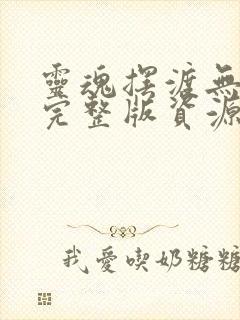 靈魂擺渡無
完整版資源
我愛喫奶糖糖